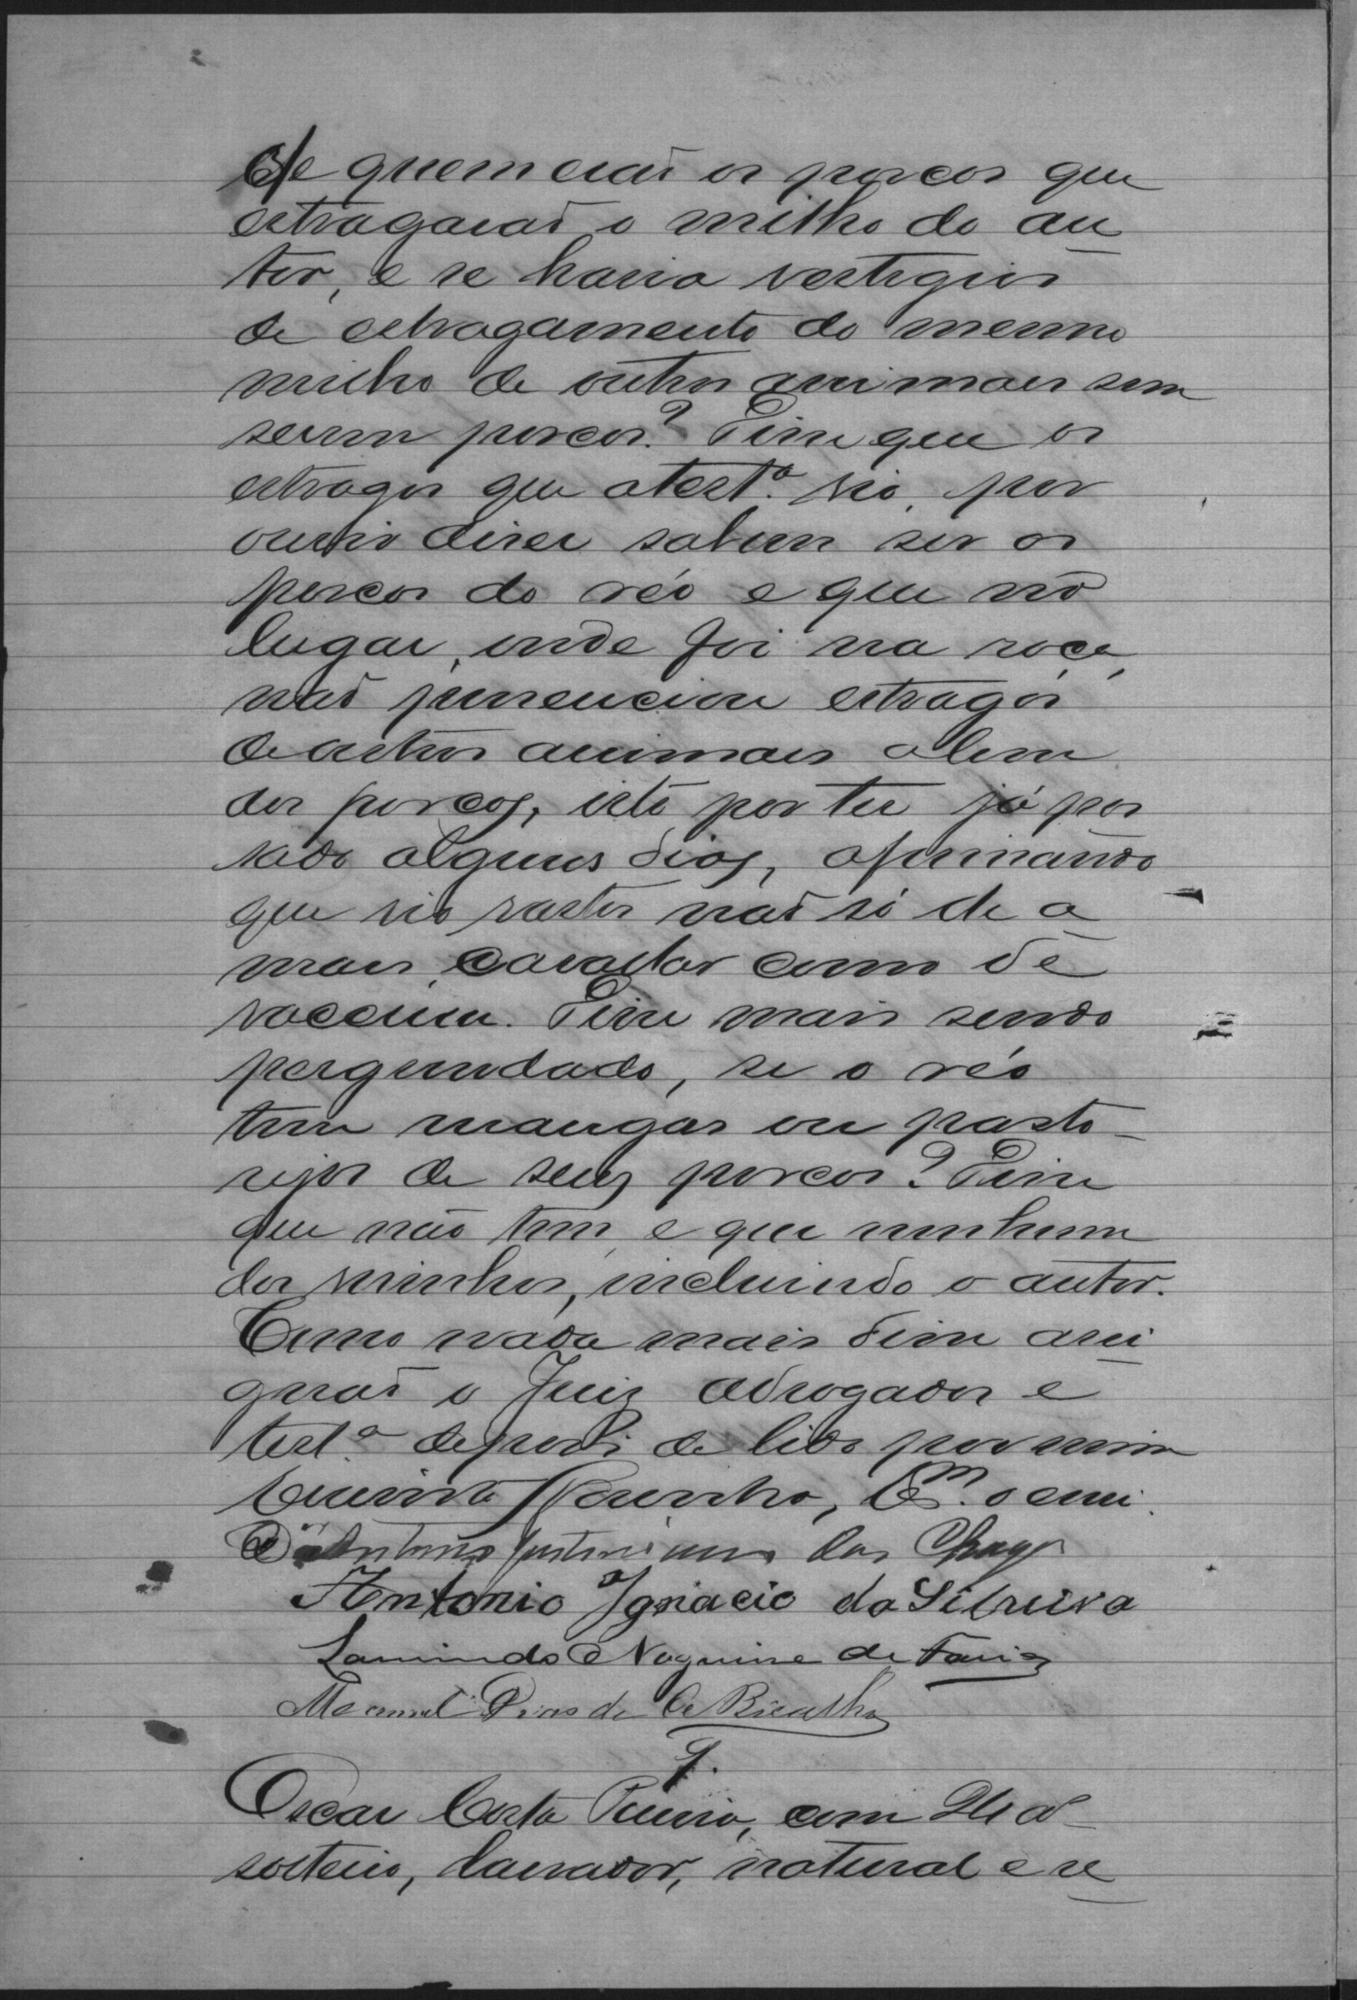 De quem erão os porcos que
estragarão o milho do au
tor, e se havia vestigios
de estragamento do mesmo
milho de outros animaes sem
serem porcos? Disse que os
estragos que a test.ª vio, por
ouvir diser saberem ser os
porcos do réo e que no
lugar, onde foi na roça,
não presenciou estragos
de outros animaes alem
dos porcos, isto por ter já pas
sado alguns dias, afirmando
que vio rastos não só de a
maes cavallar como de
vaccum. Disse mais sendo
pergundado, se o réo
tem mangas ou pasto-
rejos de seus porcos? Disse
que não tem, e que nenhum
dos visinhos, incluindo o autor.
Como nada mais disse assi
gnão o Juiz advogados e
test.ª depois de lido por mim
Escm. o escrevi.
Antonio Justiniano das Chagas
Antonio Ignacio da Silveira
Larindo Nogueira de Faria
Manoel Dias de Bicalho
Oscar Costa Pereira, com 24 a
solteiro, lavrador, natural e re